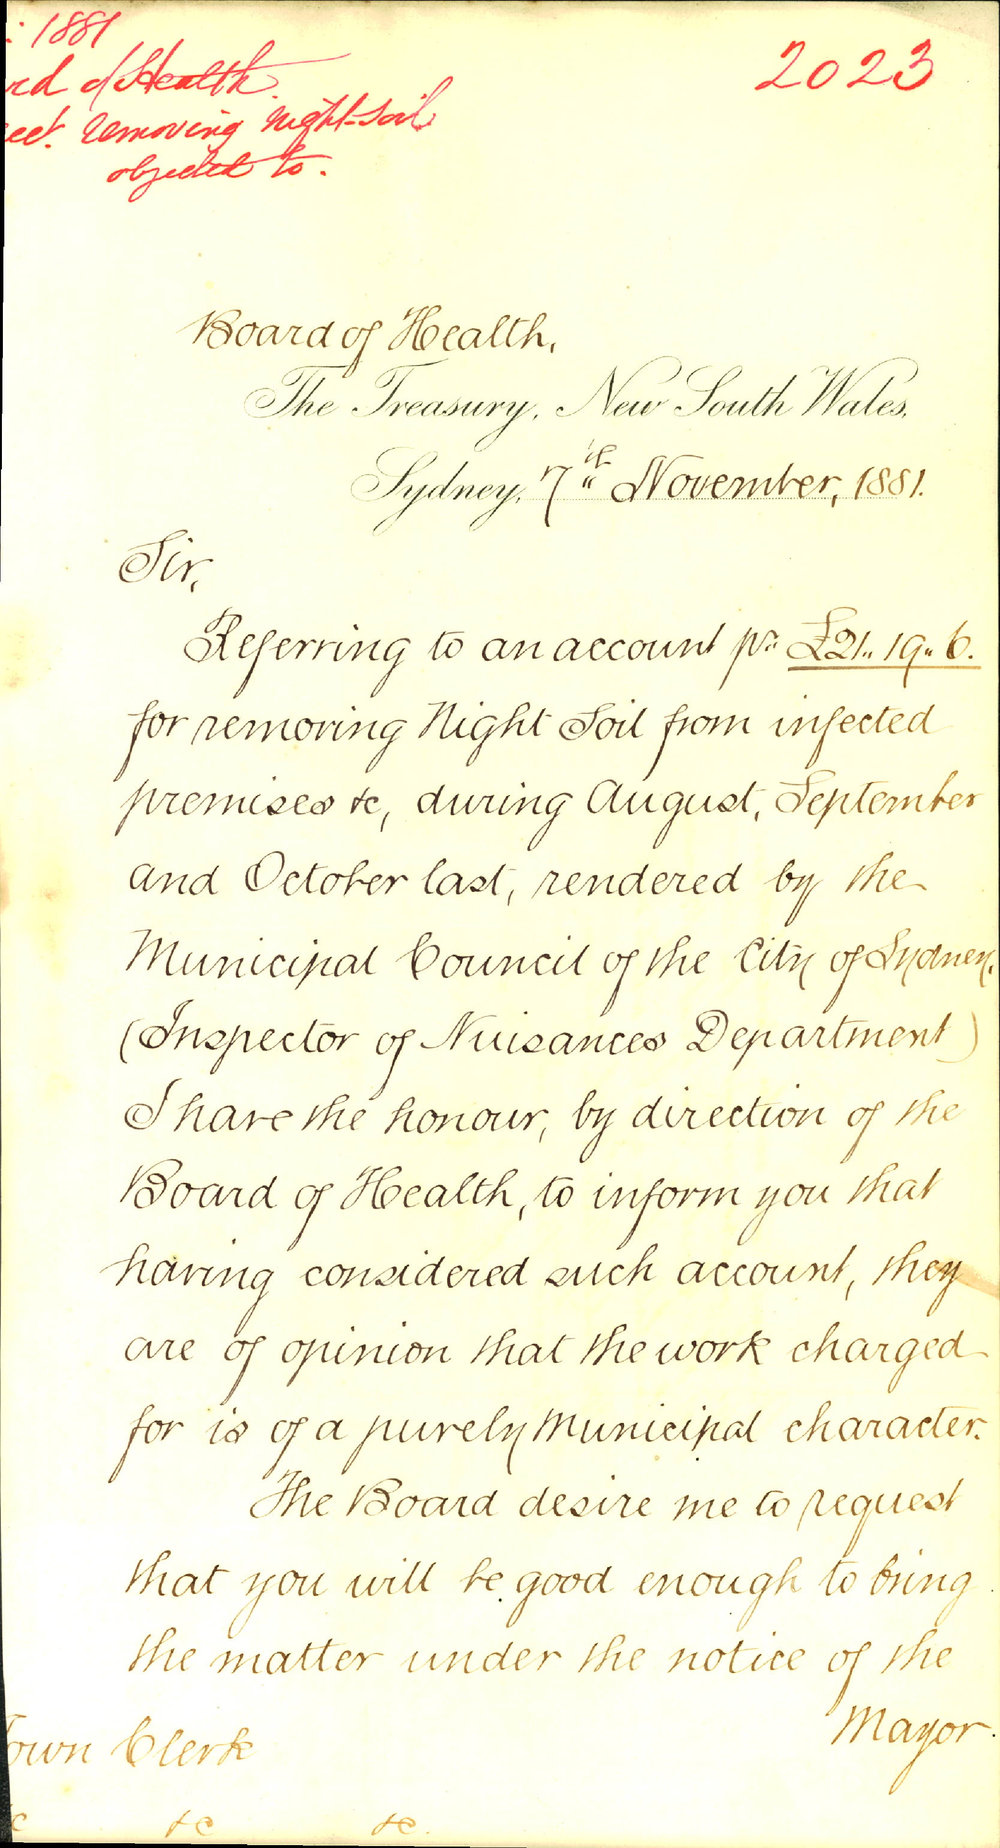 : 1881
rd of Health
cct. removing night-soil
objected to.
2023
Board of Health,
The Treasury, New South Wales,
Sydney, 7th November, 1881.
Sir,
Referring to an account pr. £21.. 19.. 6.
for removing Night Soil from infected
premises &c, during August, September
and October last, rendered by the
Municipal Council of the City of Sydney.
(Inspector of Nuisances Department)
I have the honour, by direction of the
Board of Health, to inform you that
having considered such account, they
are of opinion that the work charged
for is of a purely Municipal character.
The Board desire me to request
that you will be good enough to bring
the matter under the notice of the
Mayor.
Town Clerk
&c &c &c.